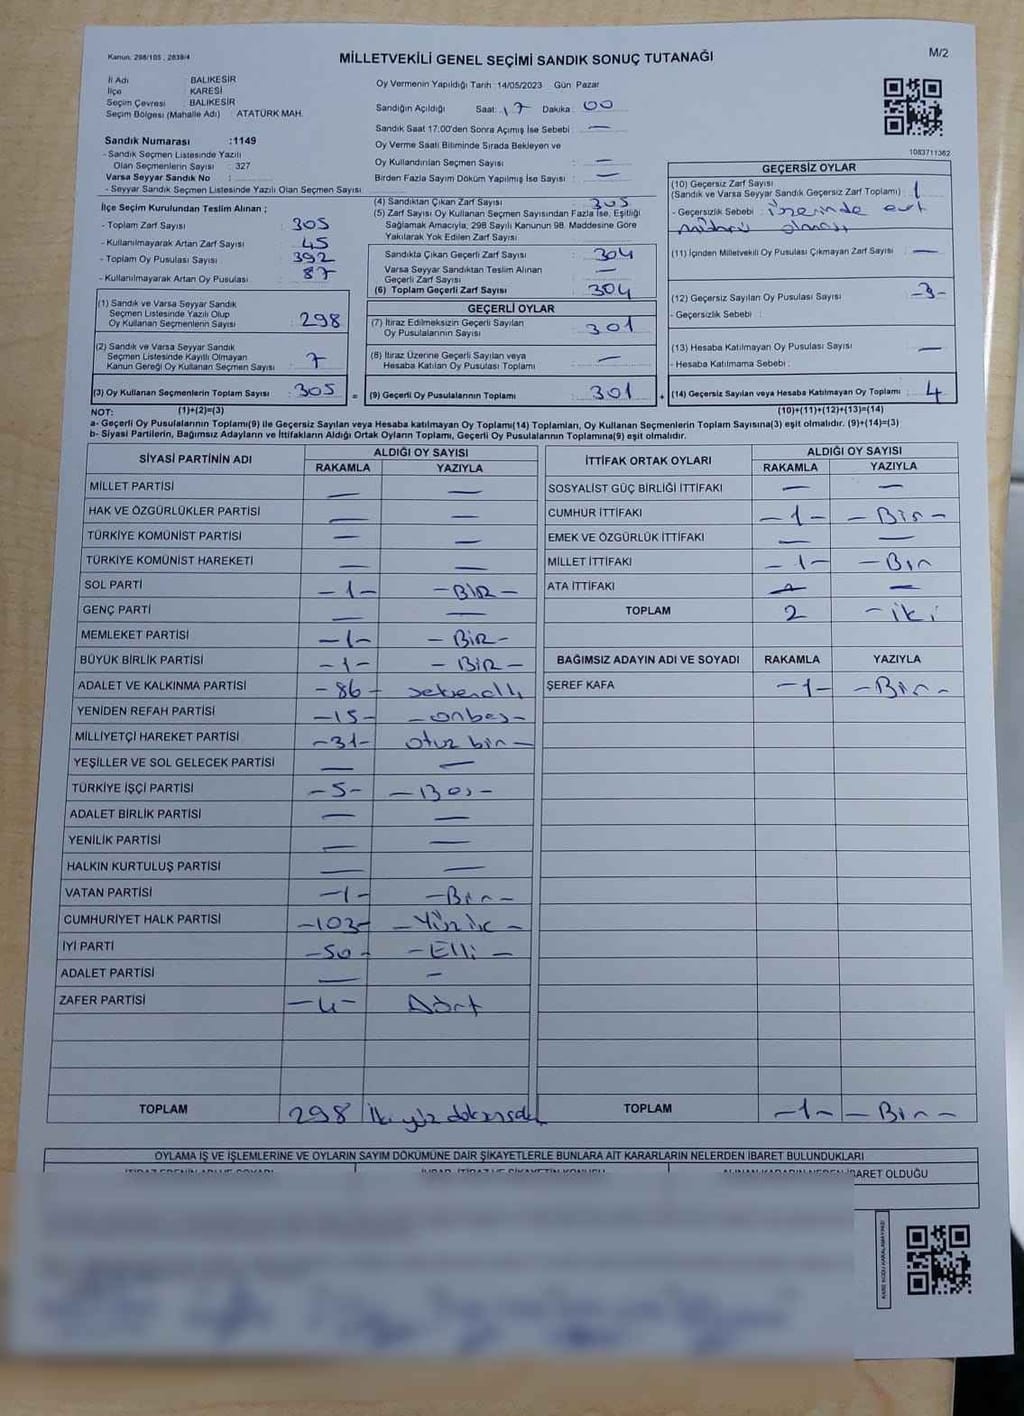 Kanun: 298/105, 2839/4
MİLLETVEKİLİ GENEL SEÇİMİ SANDIK SONUÇ TUTANAĞI
M/2
İl Adı : BALIKESİR
İlçe : KARESİ
Seçim Çevresi : BALIKESİR
Seçim Bölgesi (Mahalle Adı) : ATATÜRK MAH.
Sandık Numarası :1149
- Sandık Seçmen Listesinde Yazılı
Olan Seçmenlerin Sayısı : 327
Varsa Seyyar Sandık No :
- Seyyar Sandık Seçmen Listesinde Yazılı Olan Seçmen Sayısı
Oy Vermenin Yapıldığı Tarih :14/05/2023 Gün Pazar
Sandığın Açıldığı Saat: 17 Dakika : 00
Sandık Saat 17:00'den Sonra Açılmış İse Sebebi : —
Oy Verme Saati Bitiminde Sırada Bekleyen ve
Oy Kullandırılan Seçmen Sayısı : —
Birden Fazla Sayım Döküm Yapılmış İse Sayısı : —
1083711362
İlçe Seçim Kurulundan Teslim Alınan ;
- Toplam Zarf Sayısı : 305
- Kullanılmayarak Artan Zarf Sayısı : 45
- Toplam Oy Pusulası Sayısı : 392
- Kullanılmayarak Artan Oy Pusulası : 87
(1) Sandık ve Varsa Seyyar Sandık
Seçmen Listesinde Yazılı Olup
Oy Kullanan Seçmenlerin Sayısı : 298
(2) Sandık ve Varsa Seyyar Sandık
Seçmen Listesinde Kayıtlı Olmayan
Kanun Gereği Oy Kullanan Seçmen Sayısı : 7
(3) Oy Kullanan Seçmenlerin Toplam Sayısı : 305 =
(4) Sandıktan Çıkan Zarf Sayısı : 305
(5) Zarf Sayısı Oy Kullanan Seçmen Sayısından Fazla İse, Eşitliği
Sağlamak Amacıyla, 298 Sayılı Kanunun 98. Maddesine Göre
Yakılarak Yok Edilen Zarf Sayısı :
Sandıkta Çıkan Geçerli Zarf Sayısı : 304
Varsa Seyyar Sandıktan Teslim Alınan
Geçerli Zarf Sayısı : —
(6) Toplam Geçerli Zarf Sayısı : 304
GEÇERLİ OYLAR
(7) İtiraz Edilmeksizin Geçerli Sayılan
Oy Pusulalarının Sayısı : 301
(8) İtiraz Üzerine Geçerli Sayılan veya
Hesaba Katılan Oy Pusulası Toplamı : —
(9) Geçerli Oy Pusulalarının Toplamı : 301 +
GEÇERSİZ OYLAR
(10) Geçersiz Zarf Sayısı
(Sandık ve Varsa Seyyar Sandık Geçersiz Zarf Toplamı) : 1
- Geçersizlik Sebebi : üzerinde evet
mührü olması
(11) İçinden Milletvekili Oy Pusulası Çıkmayan Zarf Sayısı : —
(12) Geçersiz Sayılan Oy Pusulası Sayısı : -3-
- Geçersizlik Sebebi :
(13) Hesaba Katılmayan Oy Pusulası Sayısı : —
- Hesaba Katılmama Sebebi :
(14) Geçersiz Sayılan veya Hesaba Katılmayan Oy Toplamı : 4
NOT: (1)+(2)=(3) (10)+(11)+(12)+(13)=(14)
a- Geçerli Oy Pusulalarının Toplamı(9) ile Geçersiz Sayılan veya Hesaba katılmayan Oy Toplamı(14) Toplamları, Oy Kullanan Seçmenlerin Toplam Sayısına(3) eşit olmalıdır. (9)+(14)=(3)
b- Siyasi Partilerin, Bağımsız Adayların ve İttifakların Aldığı Ortak Oyların Toplamı, Geçerli Oy Pusulalarının Toplamına(9) eşit olmalıdır.
SİYASİ PARTİNİN ADI ALDIĞI OY SAYISI
RAKAMLA YAZIYLA
MİLLET PARTİSİ — —
HAK VE ÖZGÜRLÜKLER PARTİSİ — —
TÜRKİYE KOMÜNİST PARTİSİ — —
TÜRKİYE KOMÜNİST HAREKETİ — —
SOL PARTİ -1- -BİR-
GENÇ PARTİ — —
MEMLEKET PARTİSİ -1- -BİR-
BÜYÜK BİRLİK PARTİSİ -1- -BİR-
ADALET VE KALKINMA PARTİSİ -86- seksenaltı
YENİDEN REFAH PARTİSİ -15- -onbeş-
MİLLİYETÇİ HAREKET PARTİSİ -31- otuz bir-
YEŞİLLER VE SOL GELECEK PARTİSİ — —
TÜRKİYE İŞÇİ PARTİSİ -5- -Beş-
ADALET BİRLİK PARTİSİ — —
YENİLİK PARTİSİ — —
HALKIN KURTULUŞ PARTİSİ — —
VATAN PARTİSİ -1- -Bir-
CUMHURİYET HALK PARTİSİ -103- -Yüzüç-
İYİ PARTİ -50- -Elli-
ADALET PARTİSİ — —
ZAFER PARTİSİ -4- Dört
TOPLAM 298 İki yüz doksansekiz
İTTİFAK ORTAK OYLARI ALDIĞI OY SAYISI
RAKAMLA YAZIYLA
SOSYALİST GÜÇ BİRLİĞİ İTTİFAKI — —
CUMHUR İTTİFAKI -1- -Bir-
EMEK VE ÖZGÜRLÜK İTTİFAKI — —
MİLLET İTTİFAKI -1- -Bir
ATA İTTİFAKI —
TOPLAM 2 -iki
BAĞIMSIZ ADAYIN ADI VE SOYADI RAKAMLA YAZIYLA
ŞEREF KAFA -1- -Bir-
TOPLAM -1- -Bir-
OYLAMA İŞ VE İŞLEMLERİNE VE OYLARIN SAYIM DÖKÜMÜNE DAİR ŞİKAYETLERLE BUNLARA AİT KARARLARIN NELERDEN İBARET BULUNDUKLARI
İBARET OLDUĞU